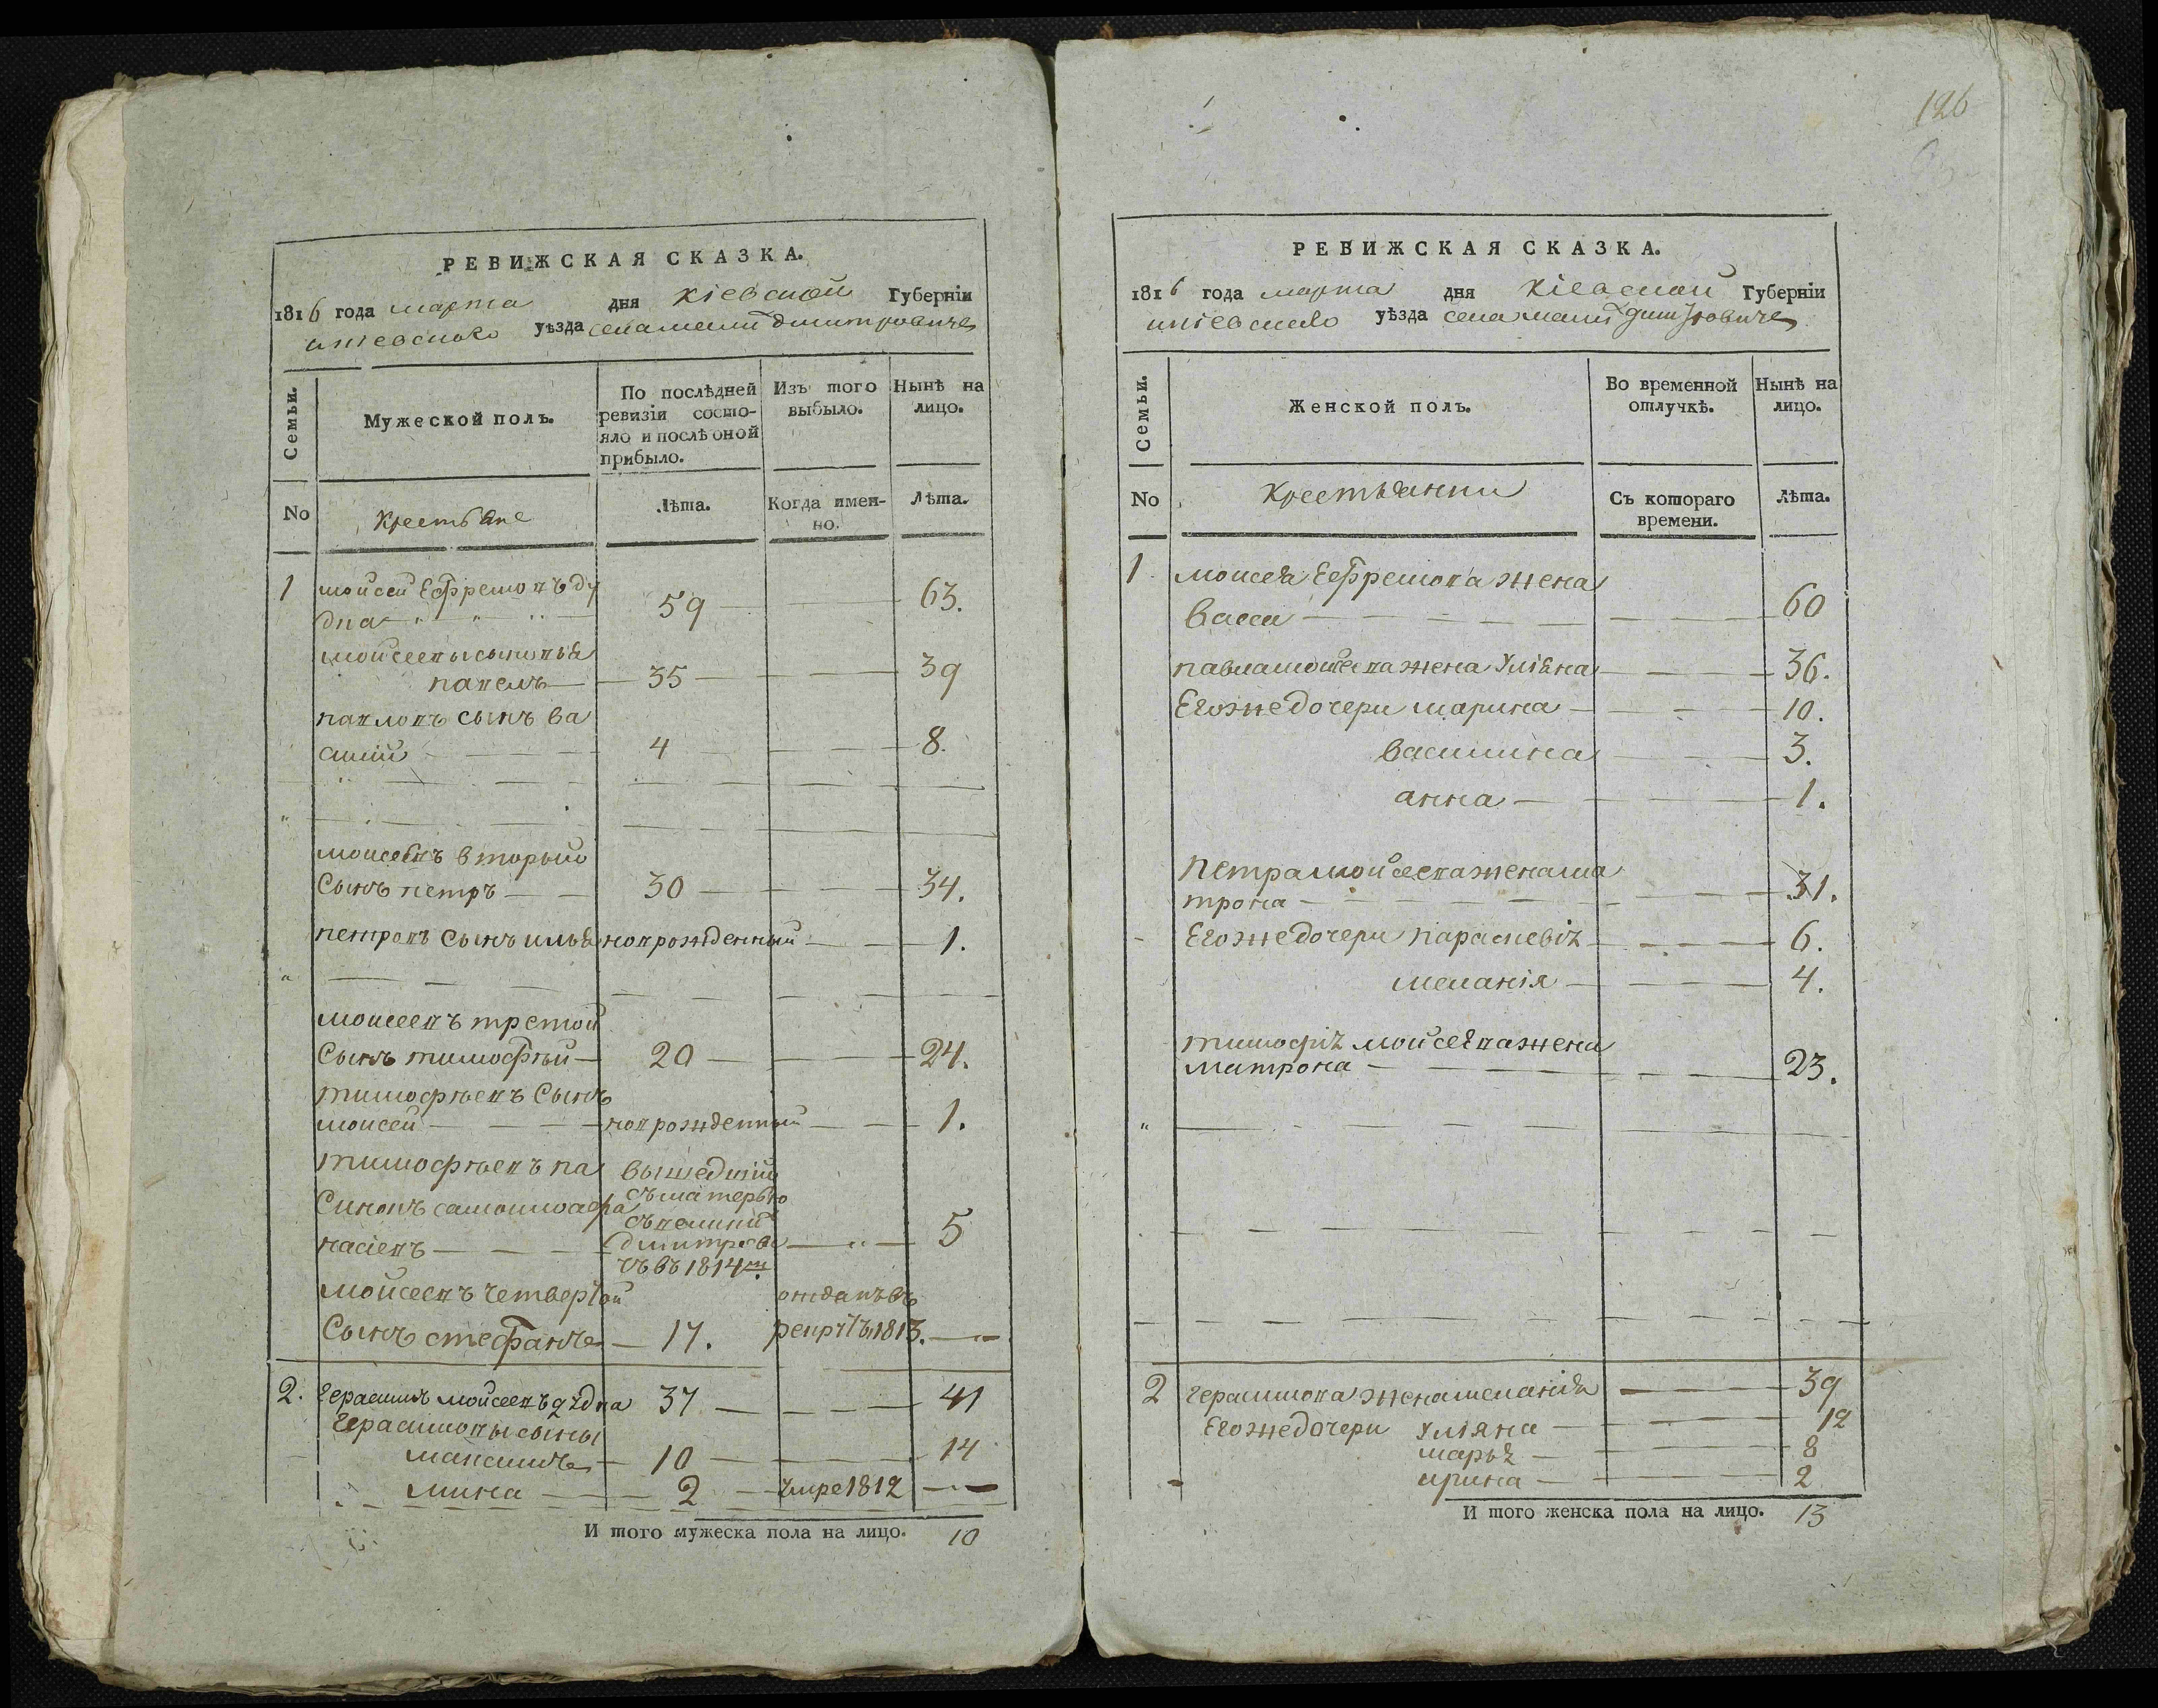 126
РЕВИЖСКАЯ СКАЗКА.
1816 года марта дня Кіевской Губерніи
Кіевского уѣзда села малой дмитровиче
Семьи.
Мужеской полъ.
По послѣдней ревизіи состо-
яло и послѣ оной прибыло.
Изъ того выбыло.
Нынѣ на лицо.
No
Крестьяне
Лѣта.
Когда имен-
но.
Лѣта.
1 мойсей Ефремовъ ду
дка 59 63.
мойсеевы сыновья
павелъ 35 39
павловъ сынъ ва
силій 4 8.
моисеевъ вторый
Сынъ петръ 30 34.
петровъ Сынъ илья новрожденный 1.
моисеевъ третой
Сынъ тимофѣй 20 24.
тимофѣевъ Сынъ
моисей новрожденный 1.
тимофѣевъ па вышедшій
Синокъ самоилъ афа съ матерью
насіевъ 5
дмитрови
чъ въ 1814м
мойсеевъ четвертой отданъ въ
Сынъ стефанъ 17. рекруты 1813.
2. Герасимъ мойсеевъ дудка 37 41
Герасимовы сыны
максимъ 10 14
мина 2 умре 1812
И того мужеска пола на лицо. 10
РЕВИЖСКАЯ СКАЗКА.
1816 года марта дня Кіевской Губерніи
Кіевского уѣзда села малой дмитровиче
Семьи.
Женской полъ.
Во временной отлучкѣ.
Нынѣ на лицо.
No
Крестьянки
Съ котораго времени.
Лѣта.
1. моисея Ефремова жена
васса 60
павла мойсеева жена Уліяна 36.
Его же дочери марина 10.
василина 3.
анна 1.
Петра мойсеева жена ма
трона 31.
Его же дочери параскевія 6.
меланія 4.
тимофія мойсеева жена
матрона 23.
2 Герасимова жена меланія 39
Его же дочери Уліяна 12
марья 8
ирина 2
И того женска пола на лицо. 13